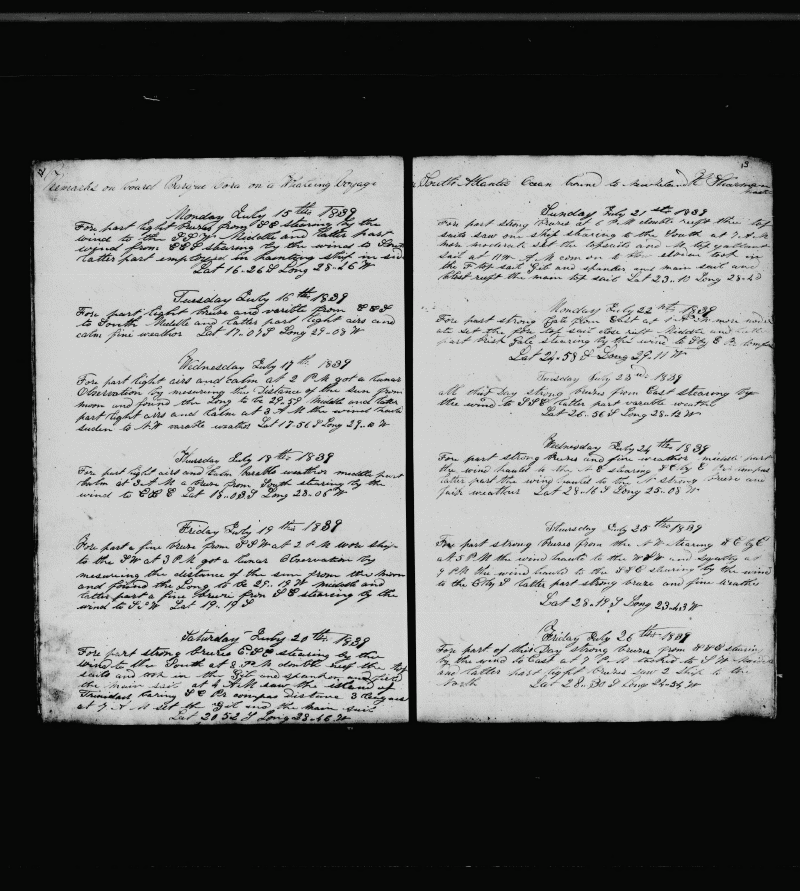 Remarks on board Barque on a Whaleing Voyage
Monday July 15th 1839
Fore part light breeze from SE stearing by the
wind to the Middle and latter part
wind from stearing by the wind to
latter part employed in haunting ship in
Lat 16-26 S Long 28-46 W
Tuesday July 16th 1839
Fore part light breeze and varible from
to South Middle and latter part light airs and
calm fine weather Lat 17-07 S Long 29-03 W
Wednesday July 17th 1839
Fore part light airs and calm at 2 PM got a lunar
Observation by mesureing the distance of the sun from
moon and found the Long to be 29-59 Middle and latter
part light airs and calm at 3 AM the wind
to NW varable weather Lat 17-56 S Long 29-10 W
Thursday July 18th 1839
Fore part light airs and calm varable weather middle part
calm at 3 AM a breze from South stearing by the
wind to Lat 18-03 S Long 28-06 W
Friday July 19th 1839
Fore part a fine breeze from SSW at 2 PM wore ship
to the SW at 3 PM got a lunar Observation by
mesureing the distance of the sun from the moon
and found the Long to be 29-19 W middle and
latter part a fine breeze from SE stearing by the
wind to Lat 19-19 S
Saturday July 20th 1839
Fore part strong breeze stearing by the
wind to the South at 3 PM double reef the top
sails and took in the Gib and spanker and
the main sail at 4 AM saw the island of
Trinidad baring SE compas distance 3 leagues
at 7 AM set the Gib and the main sail
Lat 20 52 S Long 28-46 W
13
South Atlantic Ocean bound to
Sunday July 21st 1839
Fore part strong brezes at 6 PM double reeft the top
sails saw one ship stearing to the South at 7 AM
more moderate set the topsails and M top gallant
sail at AM took in
the F top sail Gib and spanker and main sail and
close reeft the main top sail Lat 23-10 Long 28-40
Monday July 22nd 1839
Fore part strong Gale from East at AM more moder
ate set the fore top sail close reeft Middle and latter
part brisk Gale stearing by the wind to compas
Lat 24-59 S Long 29-11 W
Tuesday July 23rd 1839
all this Day strong brezes from East stearing by
the wind to SSE latter part varable weather
Lat 26-56 S Long 28-12 W
Wednesday July 24th 1839
Fore part strong brezes and fine weather middle part
the wind hauld to by NE stearing compas
latter part the wind hauld to the N strong breeze and
fair weather Lat 28-16 S Long 25-08 W
Thursday July 25th 1839
Fore part strong brezes from the NW stearing
at 5 PM the wind hauld to the WSW and squally at
9 PM the wind hauld to the stearing by the wind
to the latter part strong breze and fine weather
Lat 28-19 S Long 23-43 W
Friday July 26th 1839
Fore part of this Day strong breze from stearing
by the wind to East at 7 PM tacked to SW
and latter part light brezes saw 2 Ship to the
North Lat 28-30 S Long 24-34 W